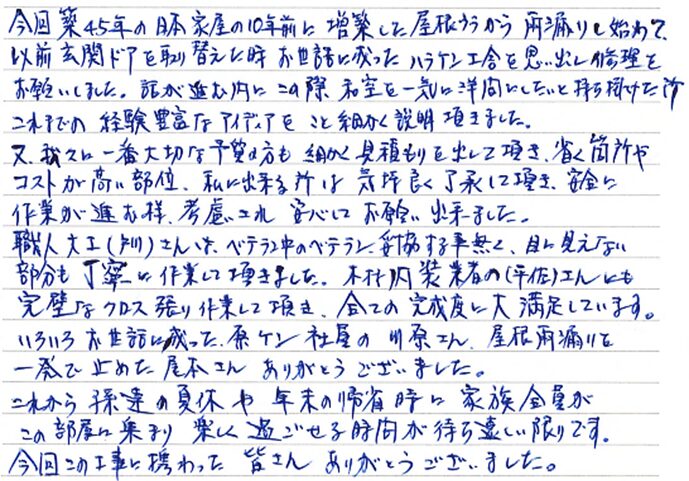 今回築45年の日本家屋の10年前に増築した屋根から雨漏りし始めて
以前玄関ドアを取り替えた時お世話に成ったハラケン工舎を思い出し修理を
お願いしました。話が進む内にこの際和室を一気に洋間にしたいと持ち掛けた所
これまでの経験豊富なアイディアをこと細かく説明頂きました。
又、我々に一番大切な予算の方も細かく見積もりを出して頂き、省く箇所や
コストが高い部位、私に出来る所は気持良く了承して頂き、安全に
作業が進む様、考慮され安心してお願い出来ました。
職人大工(戸川)さんは、ベテラン中のベテラン、妥協する事無く、目に見えない
部分も丁寧に作業して頂きました。木村内装業者の(平佐)さんにも
完璧なクロス張り作業して頂き、全ての完成度に大満足しています。
いろいろお世話に成った、原ケン社員の川原さん、屋根雨漏りを
一発で止めた尾本さんありがとうございました。
これから孫達の夏休や年末の帰省時に家族全員が
この部屋に集まり楽しく過ごせる時間が待ち遠しい限りです。
今回この工事に携わった皆さんありがとうございました。